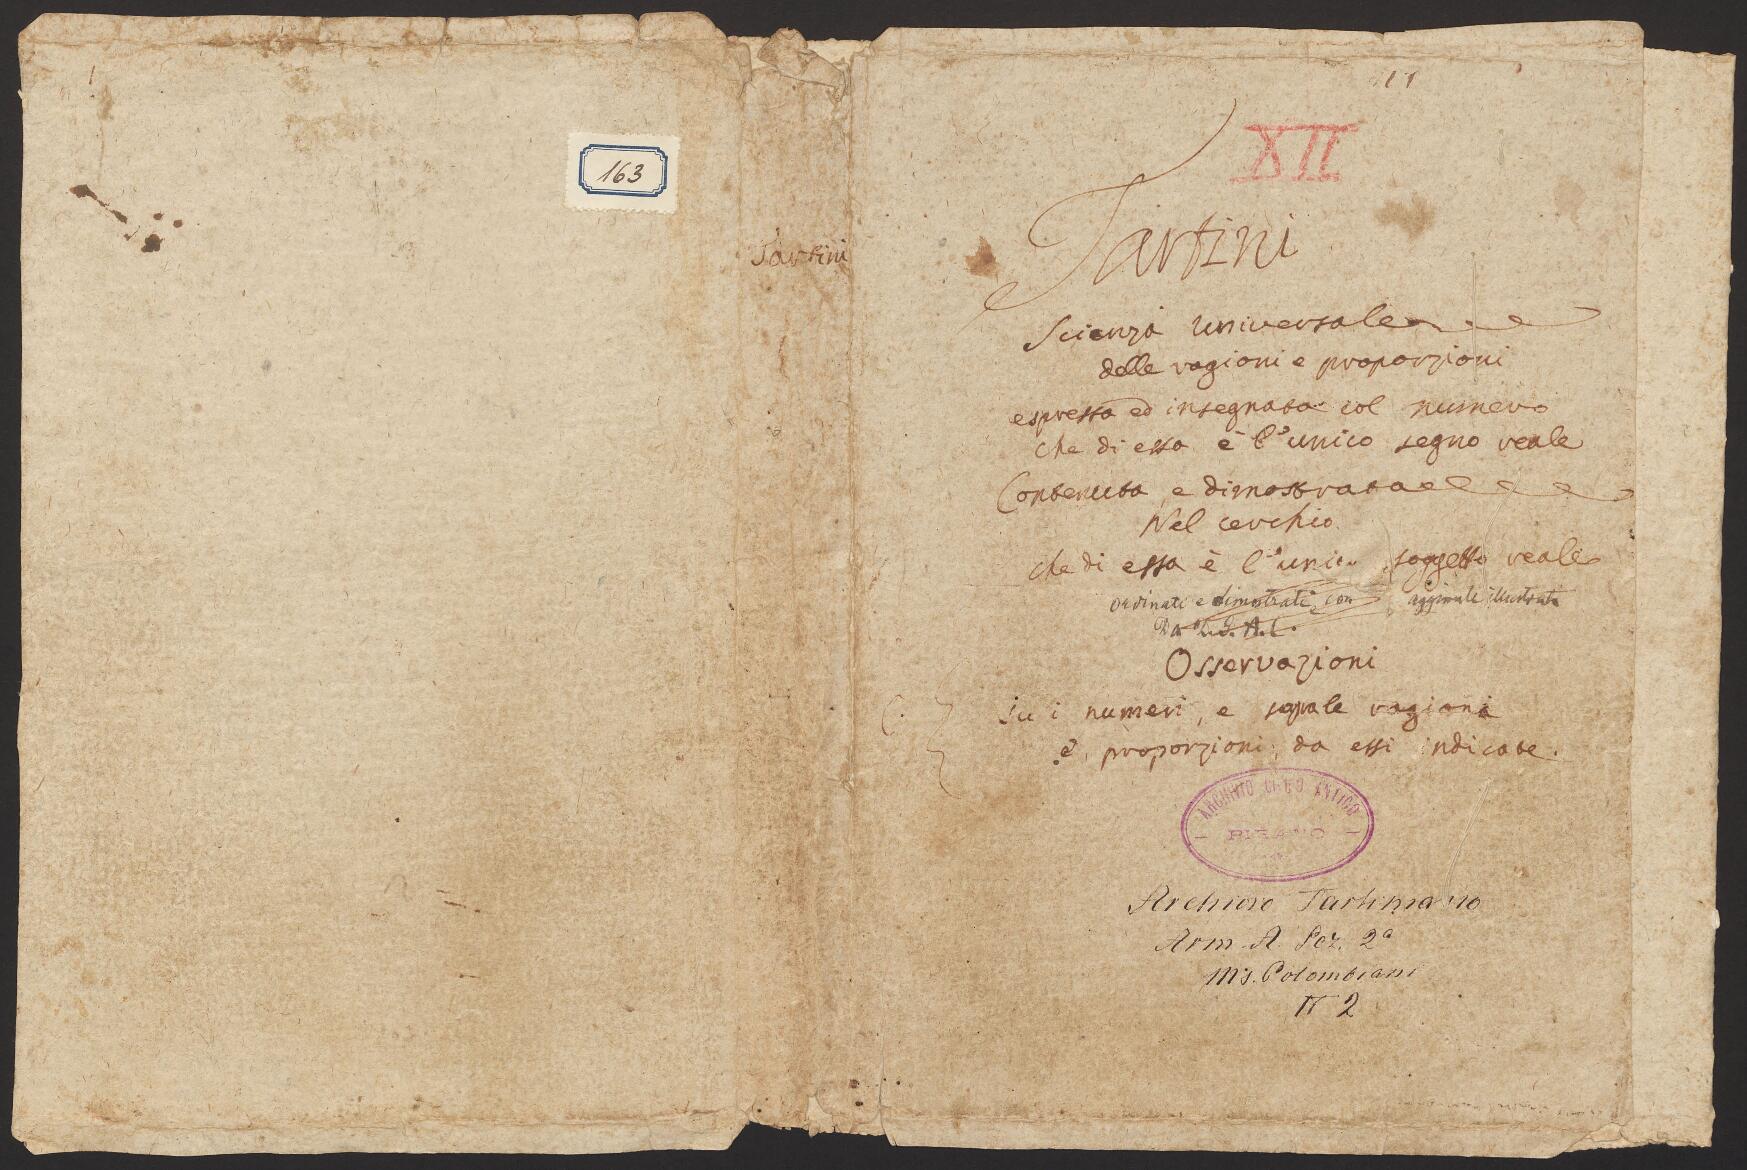 163
Tartini
11
XII
Tartini
Scienza universale
delle ragioni e proporzioni
espressa ed insegnata col numero
che di essa è l'unico segno reale
Contenuta, e dimostrata
Nel cerchio
che di essa è l'unico soggetto reale
ordinati e dimostrati con aggiunte illustrati
Da
Osservazioni
su i numeri, e sopra le ragioni
e, proporzioni, da essi indicate.
ARCHIVIO CIVICO ANTICO
PIRANO
Archivio Tartiniano
Arm. A. Pez. 2ª
Ms. Colombiani
N 2